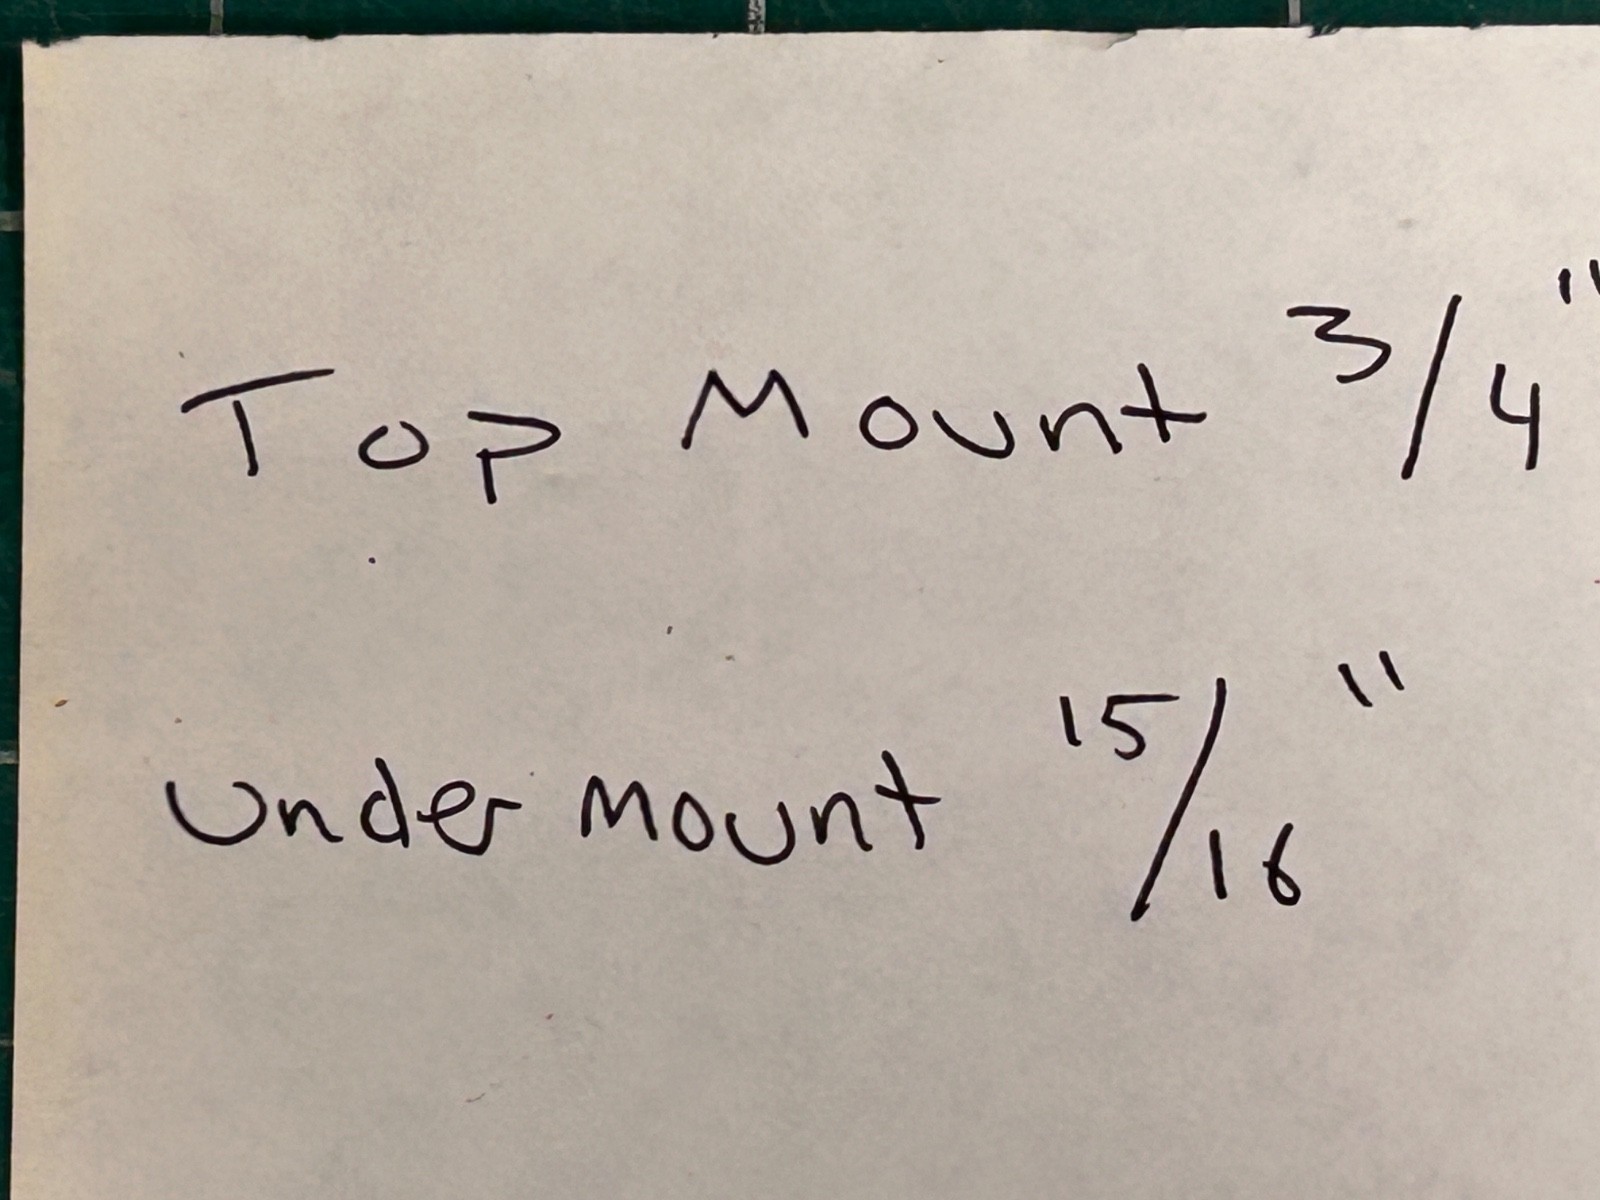 Top Mount 3/4"
Under mount 15/16"